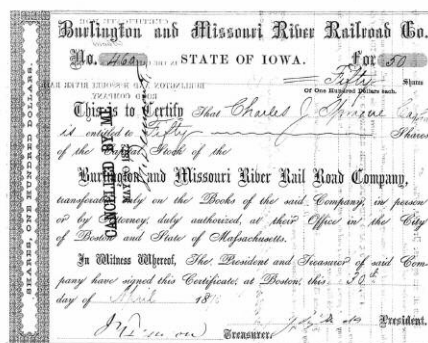 Burlington and Missouri River Railroad Co.
No. 460 For 50
STATE OF IOWA.
Fifty Shares
Of One Hundred Dollars each.
This is to Certify That Charles J.
is entitled to Fifty Shares
of the Capital Stock of the
Burlington and Missouri River Rail Road Company,
transferable only on the Books of the said Company, in person
or by Attorney, duly authorized, at their Office in the City
of Boston and State of Massachusetts.
In Witness Whereof, The President and Treasurer of said Com-
pany have signed this Certificate, at Boston, this 30th
day of April 18
President.
Treasurer.
SHARES, ONE HUNDRED DOLLARS.
CANCELLED BY ME
MAY